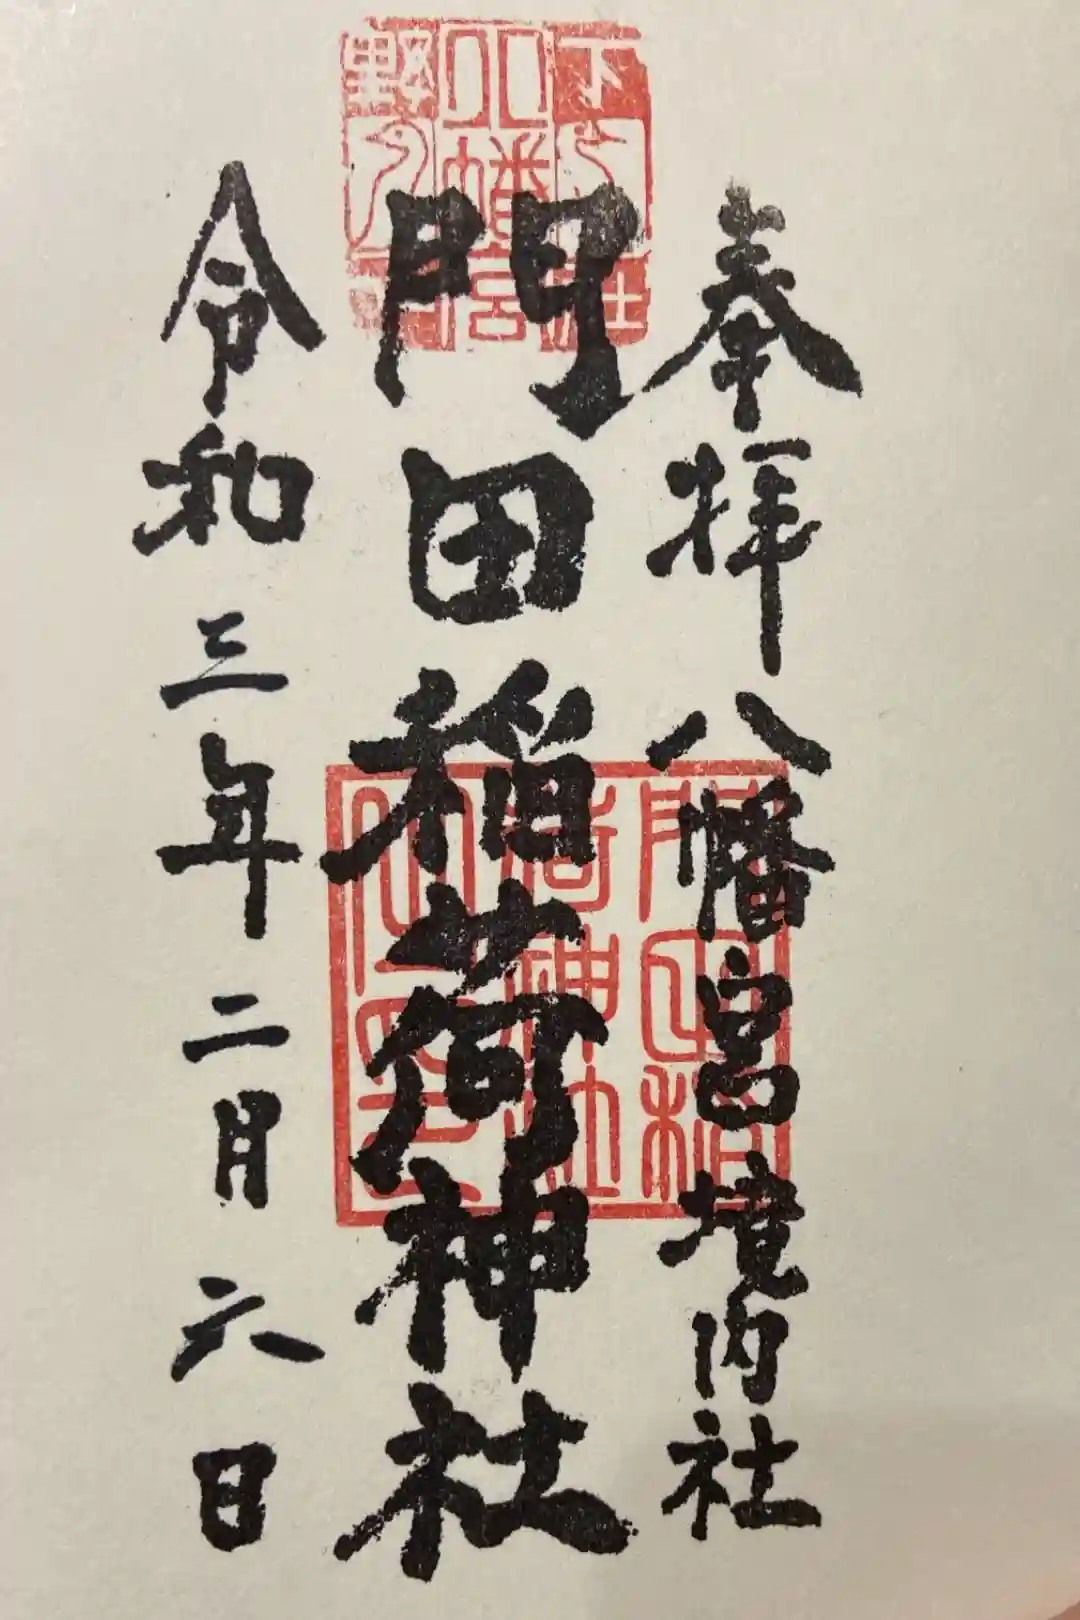 奉拝 八幡宮境内社
門田稲荷神社
令和三年二月六日
下野
八幡宮
門田稲
荷神社